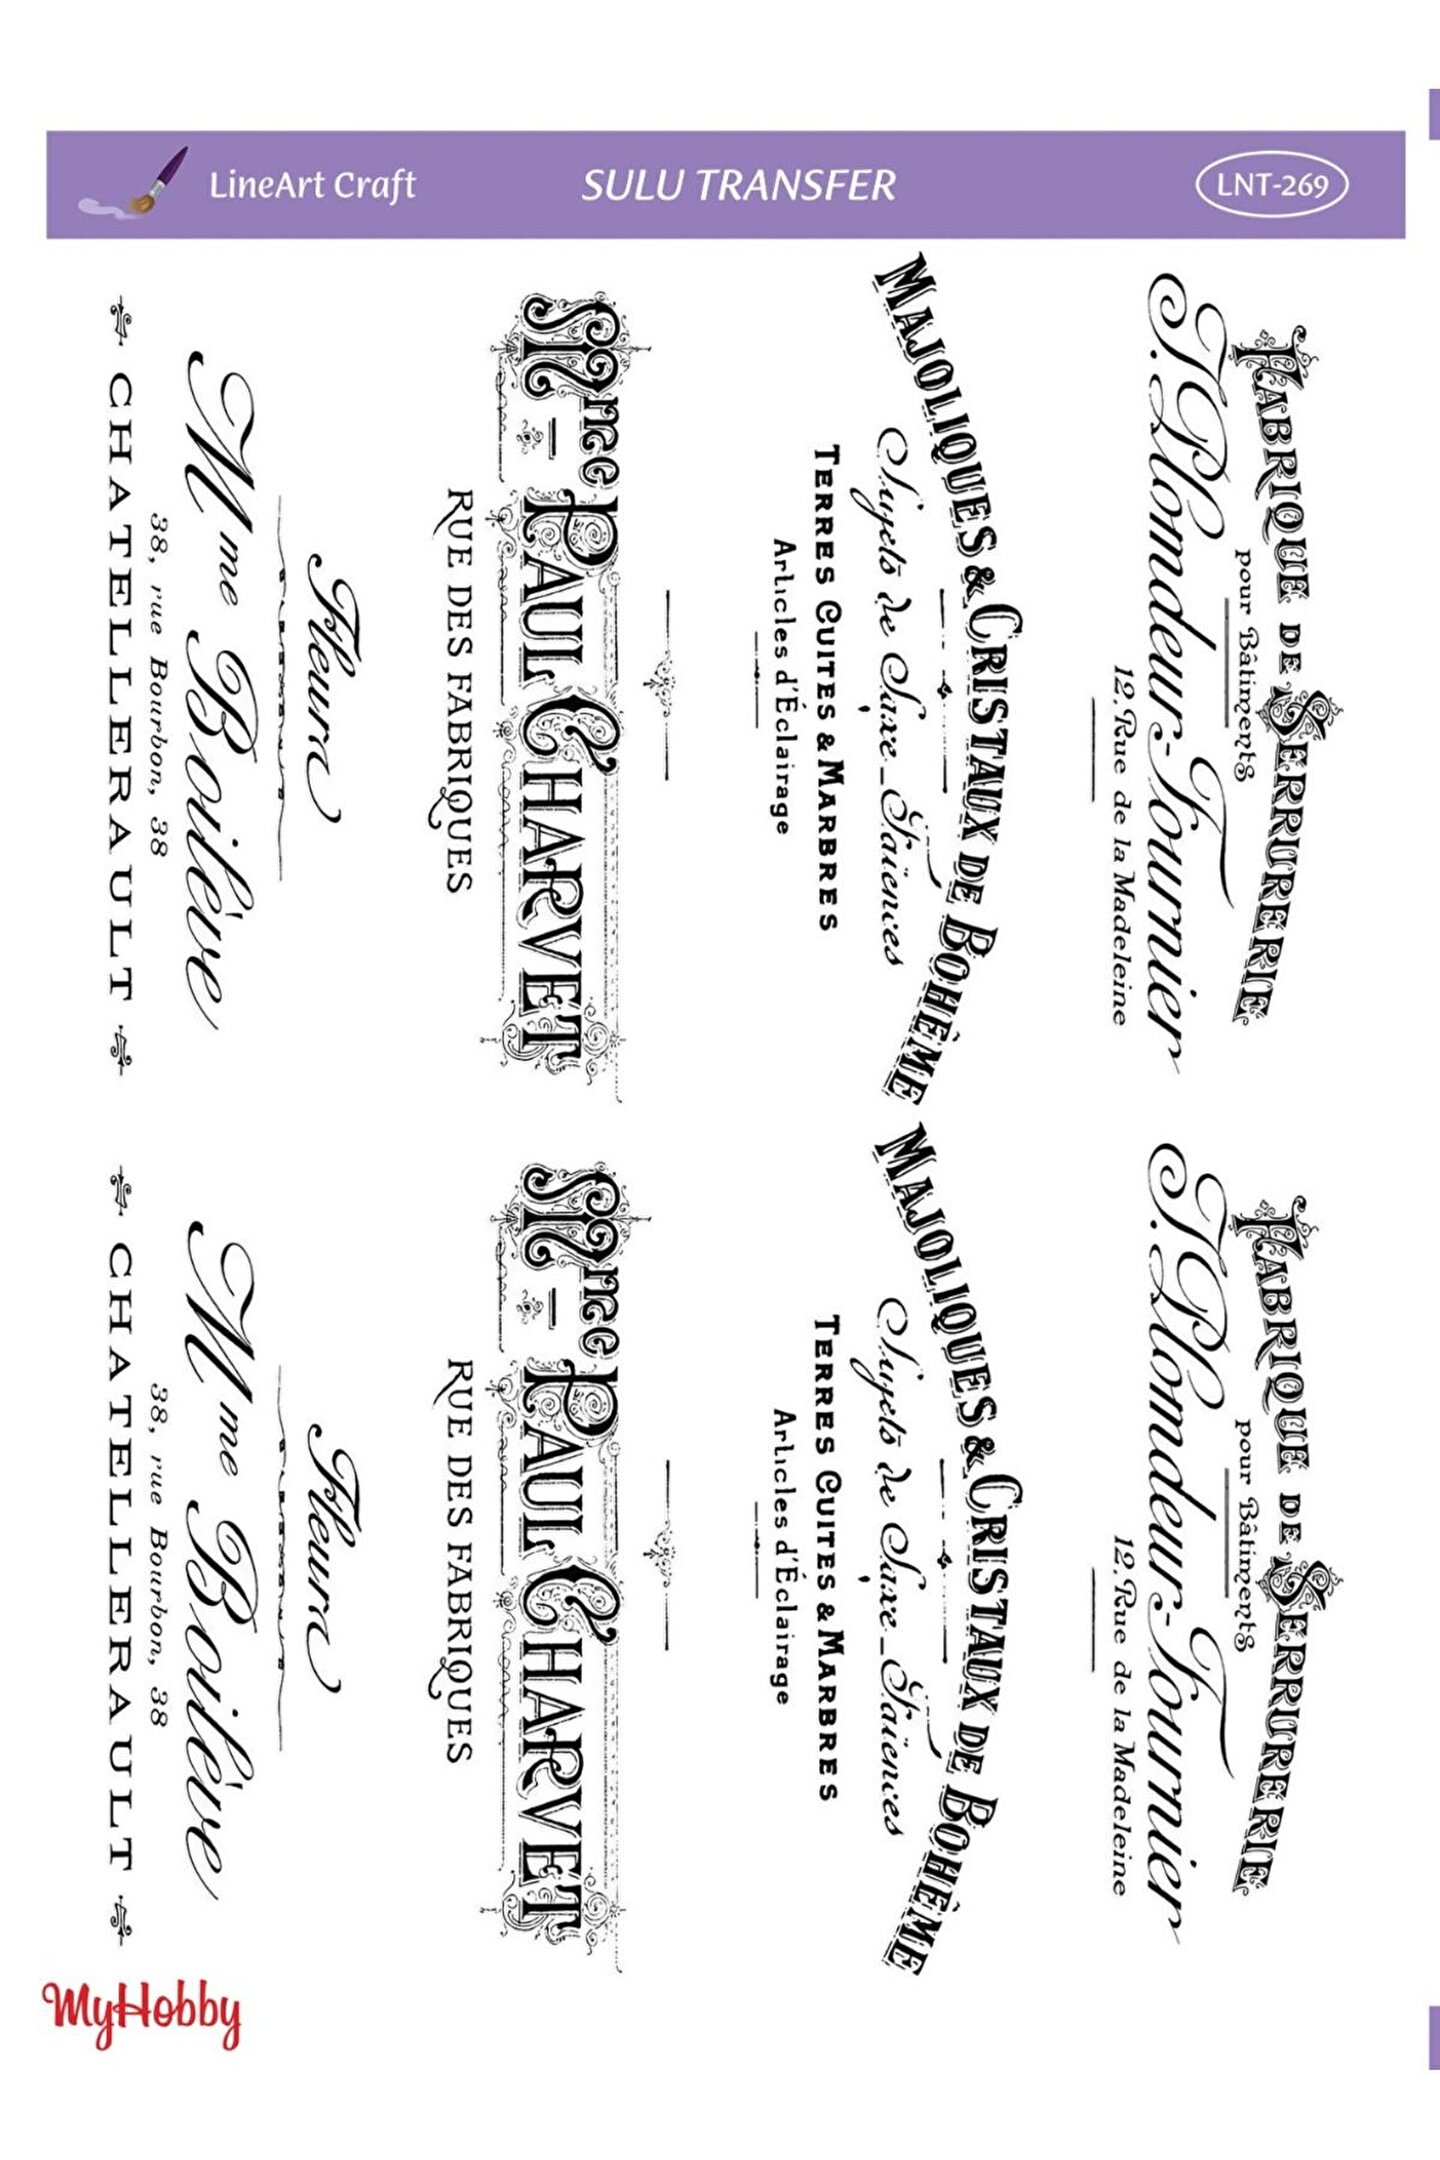 LineArt Craft
SULU TRANSFER
LNT-269
FABRIQUE DE SERRURERIE
pour Bâtiments
J. Plomdeur-Fournier
12, Rue de la Madeleine
MAJOLIQUES & CRISTAUX DE BOHÊME
Sujets de Saxe _ Faïences
TERRES CUITES & MARBRES
Articles d'Éclairage
Mre - PAUL CHARVET
RUE DES FABRIQUES
Fleurs
Mme Boilève
38, rue Bourbon, 38
CHATELLERAULT
FABRIQUE DE SERRURERIE
pour Bâtiments
J. Plomdeur-Fournier
12, Rue de la Madeleine
MAJOLIQUES & CRISTAUX DE BOHÊME
Sujets de Saxe _ Faïences
TERRES CUITES & MARBRES
Articles d'Éclairage
Mre - PAUL CHARVET
RUE DES FABRIQUES
Fleurs
Mme Boilève
38, rue Bourbon, 38
CHATELLERAULT
MyHobby